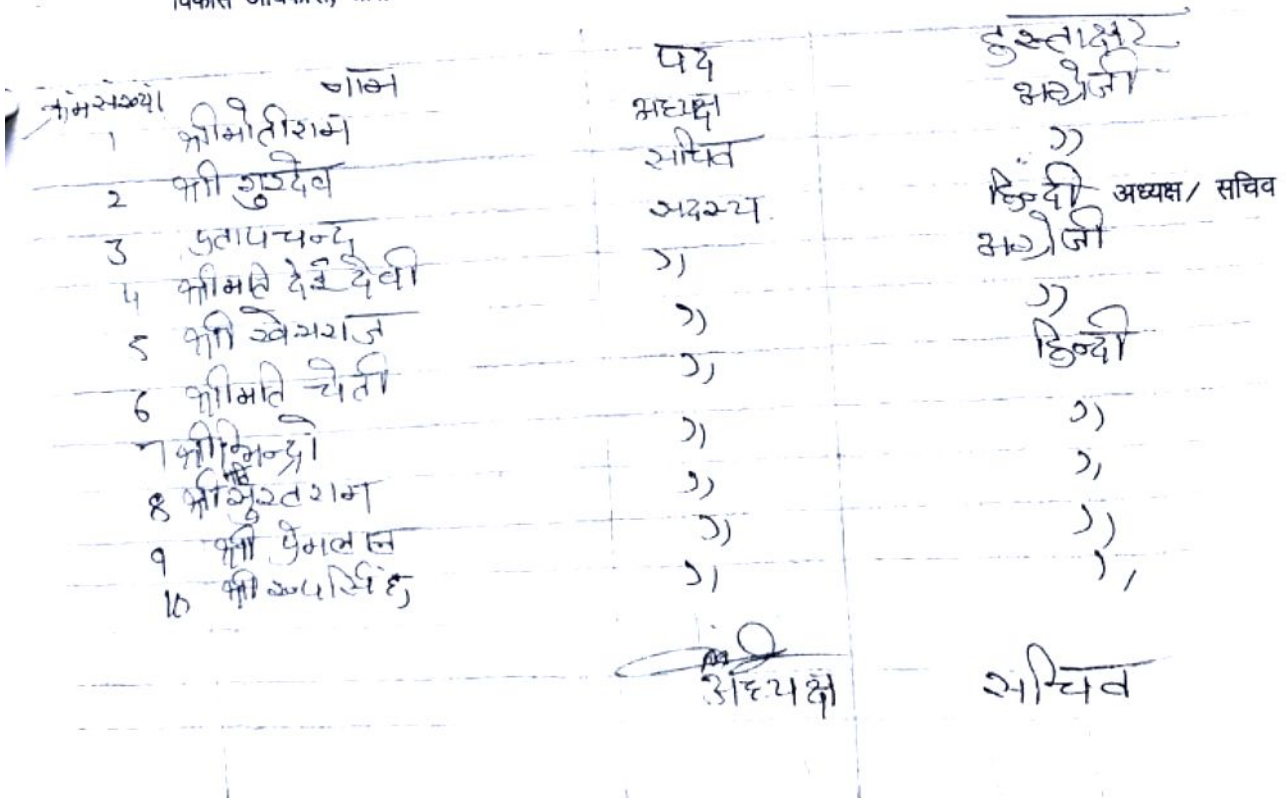 विकास अधिकारी,
क्रम संख्या नाम पद हस्ताक्षर
1 श्री मोतीराम अध्यक्ष अंग्रेजी
2 श्री गुरदेव सचिव ))
3 प्रतापचन्द सदस्य हिन्दी अध्यक्ष/ सचिव
4 श्रीमति देई देवी )) अंग्रेजी
5 श्री खेमराज )) ))
6 श्रीमति चेती )) हिन्दी
7 श्री )) ))
8 श्री सुरतराम )) ))
9 श्री प्रेमलाल )) ))
10 श्री रूपसिंह )) ))
अध्यक्ष सचिव